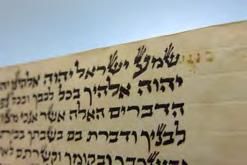 שמע ישראל יהוה אלהינו
יהוה אלהיך בכל לבבך ובכל
הדברים האלה אשר אנכי
לבניך ודברת בם בשבתך
ובקומך וקשרתם